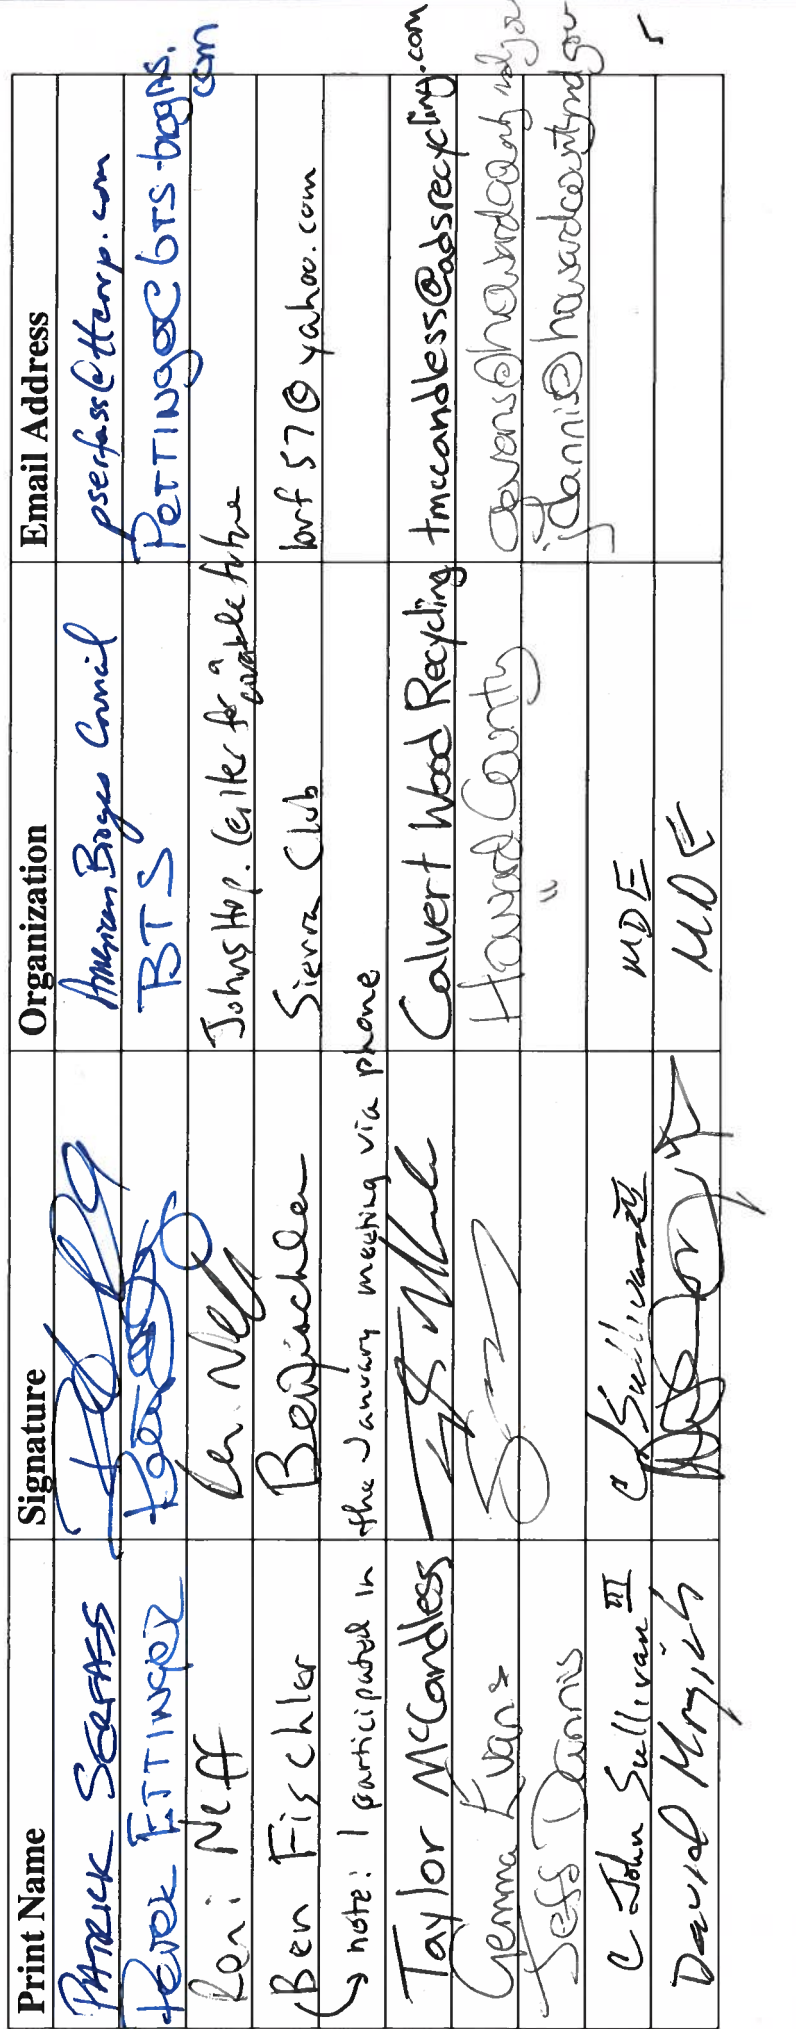 Print Name Signature Organization Email Address
PATRICK SERFASS American Biogas Council pserfass@ttcorp.com
PETER ETTINGER BTS PETTINGER@BTS-biogas.com
Roni Neff Roni Neff Johns Hop. Center for a livable future
Ben Fischler Ben Fischler Sierra Club bnf57@yahoo.com
note: I participated in the January meeting via phone
Taylor McCandless Calvert Wood Recycling tmccandless@adsrecycling.com
Gemma Evans Howard County gevans@howardcountymd.gov
Jeff Dannis " jdannis@howardcountymd.gov
C John Sullivan III C J Sullivan III MDE
David Mrgich MDE